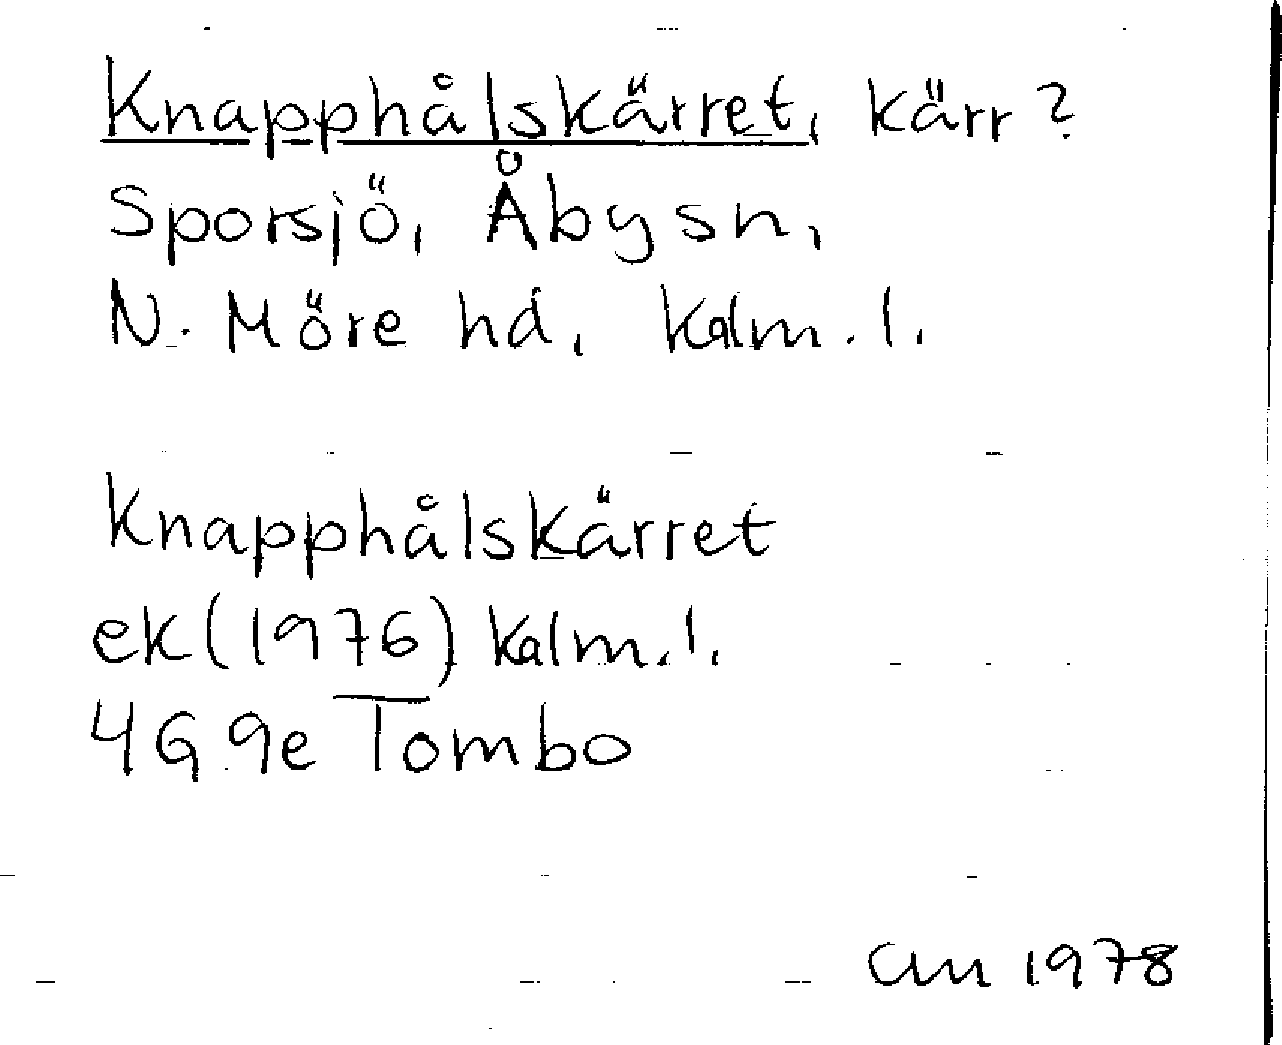 Knapphålskärret, kärr?
Sporsjö, Åby sn,
N. Möre hd, Kalm. l.
Knapphålskärret
ek (1976) Kalm. l.
4G 9e Tombo
CM 1978